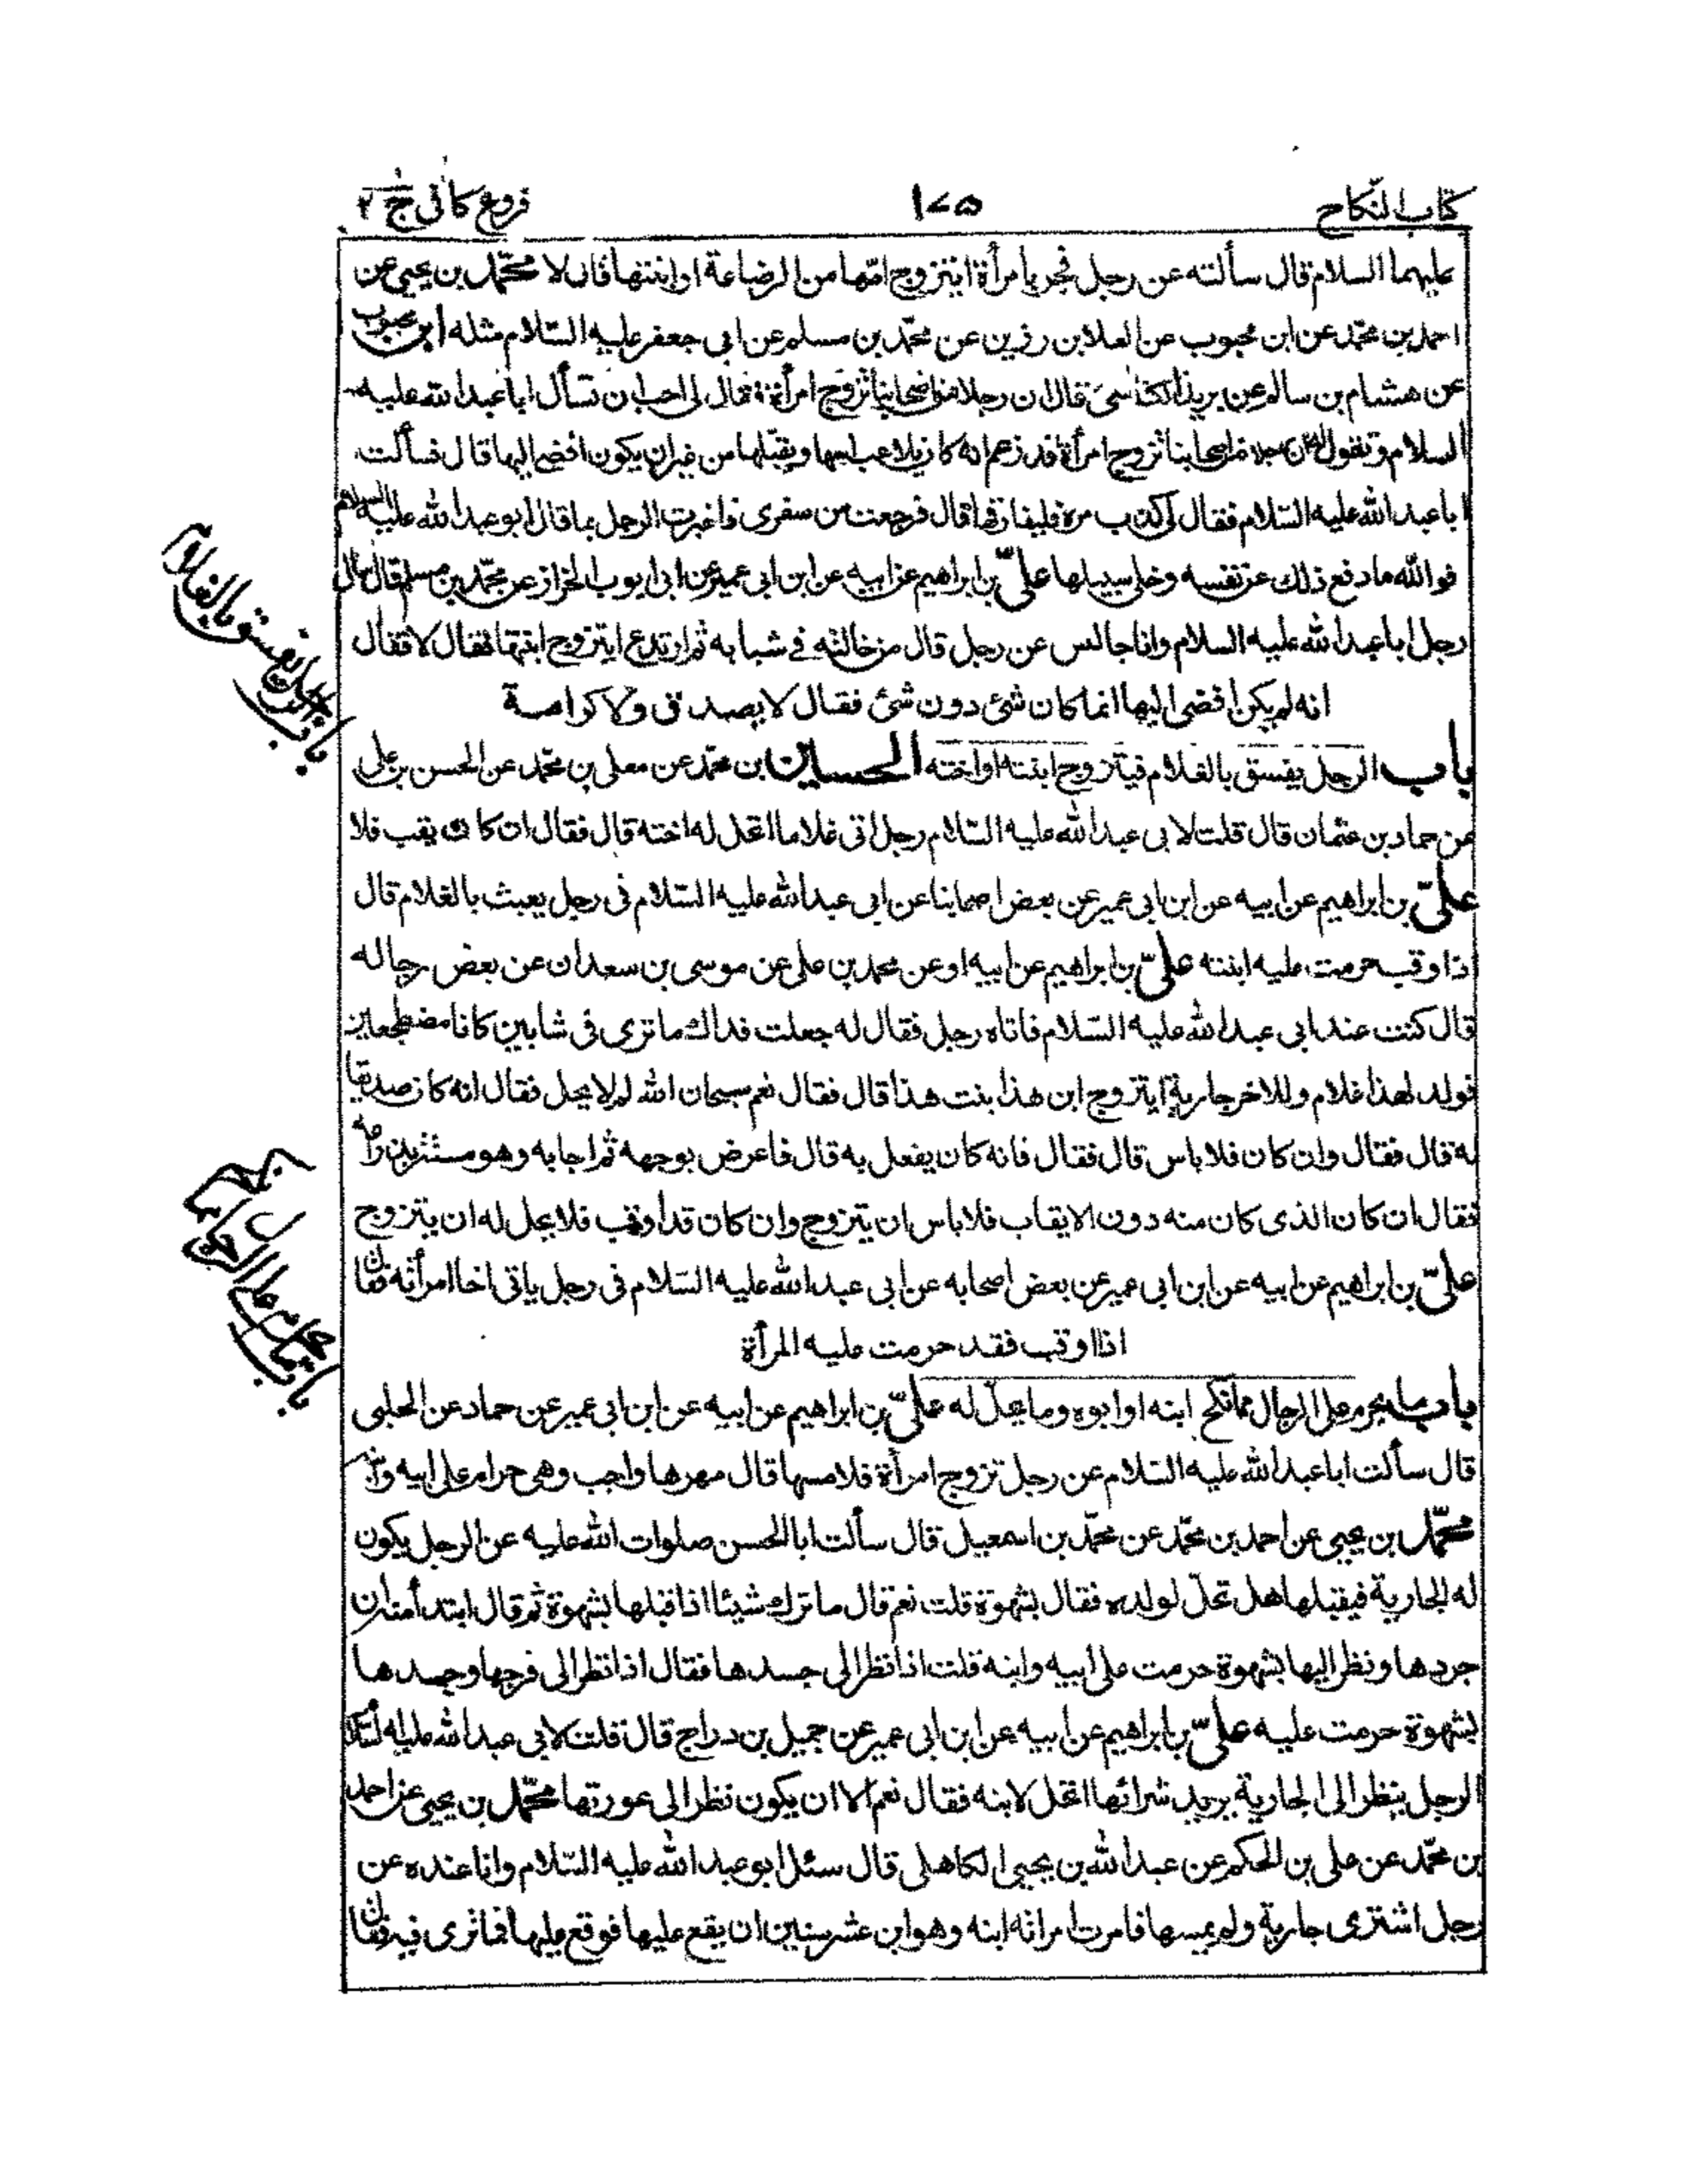 كتاب النّكاح
١٧٥
فروع كافى ج ٢
عليهما السلام قال سألته عن رجل فجر بامرأة ايتزوج امّها من الرضاعة او ابنتها قال لا محمّد بن يحيى عن
احمد بن محمّد عن ابن محبوب عن العلا بن رزين عن محمّد بن مسلم عن ابى جعفر عليه السّلام مثله ابن محبوب
عن هشام بن سالم عن بريد الكناسىّ قال ان رجلا من اصحابنا تزوج امرأة فقال لى احب ان تسأل ابا عبد الله عليه
السلام وتقول له ان رجلا من اصحابنا تزوج امرأة قد زعم انه كان يلاعب امها ويقبّلها من غير ان يكون افضى اليها قال فسألت
ابا عبد الله عليه السّلام فقال لى كذب مره فليفارقها قال فرجعت من سفرى فاخبرت الرجل بما قال ابو عبد الله عليه السلام
فوالله ما دفع ذلك عن نفسه وخلى سبيلها علىّ بن ابراهيم عن ابيه عن ابن ابى عمير عن ابى ايوب الخزاز عن محمّد بن مسلم قال سأل
رجل ابا عبد الله عليه السلام وانا جالس عن رجل قال من خالته فى شبابه ثم ارتدع ايتزوج ابنتها فقال لا فقال
انه لم يكن افضى اليها انما كان شئ دون شئ فقال لا يصدق ولا كرامة
باب الرجل يفسق بالغلام فيتزوج ابنته او اخته الحسين بن محمّد عن معلى بن محمّد عن الحسن بن على
عن حماد بن عثمان قال قلت لابى عبد الله عليه السّلام رجل اتى غلاما اتحل له اخته قال فقال ان كان ثقب فلا
علىّ بن ابراهيم عن ابيه عن ابن ابى عمير عن بعض اصحابنا عن ابى عبد الله عليه السّلام فى رجل يعبث بالغلام قال
اذا وقب حرمت عليه ابنته علىّ بن ابراهيم عن ابيه او عن محمد بن على عن موسى بن سعدان عن بعض رجاله
قال كنت عند ابى عبد الله عليه السّلام فاتاه رجل فقال له جعلت فداك ما ترى فى شابين كانا مضطجعين
فولد لهذا غلام وللاخر جارية ايتزوج ابن هذا بنت هذا قال فقال نعم سبحان الله لم لا يحل فقال انه كان صديقا
له قال فقال وان كان فلا باس قال فقال فانه كان يفعل به قال فاعرض بوجهه ثم اجابه وهو مستتر بذراعه
فقال ان كان الذى كان منه دون الايقاب فلا باس ان يتزوج وان كان قد اوقب فلا يحل له ان يتزوج
علىّ بن ابراهيم عن ابيه عن ابن ابى عمير عن بعض اصحابه عن ابى عبد الله عليه السّلام فى رجل ياتى اخا امرأته فقال
اذا اوقب فقد حرمت عليه المرأة
باب ما يحرم على الرجال مما نكح ابنه او ابوه وما يحلّ له علىّ بن ابراهيم عن ابيه عن ابن ابى عمير عن حماد عن الحلبى
قال سألت ابا عبد الله عليه السّلام عن رجل تزوج امرأة فلامسها قال مهرها واجب وهى حرام على ابيه وابنه
محمّد بن يحيى عن احمد بن محمّد عن محمّد بن اسمعيل قال سألت ابا الحسن صلوات الله عليه عن الرجل يكون
له الجارية فيقبلها هل تحلّ لولده فقال بشهوة قلت نعم قال ما ترك شيئا اذا قبلها بشهوة ثم قال ابتداً منه ان
جردها ونظر اليها بشهوة حرمت على ابيه وابنه قلت اذا نظر الى جسدها فقال اذا نظر الى فرجها وجسدها
بشهوة حرمت عليه علىّ بن ابراهيم عن ابيه عن ابن ابى عمير عن جميل بن دراج قال قلت لابى عبد الله عليه السّلام
الرجل ينظر الى الجارية يريد شرائها اتحل لابنه فقال نعم الا ان يكون نظر الى عورتها محمّد بن يحيى عن احمد
بن محمّد عن على بن الحكم عن عبد الله بن يحيى الكاهلى قال سئل ابو عبد الله عليه السّلام وانا عنده عن
رجل اشترى جارية ولم يمسها فامرت امراته ابنه وهو ابن عشر سنين ان يقع عليها فوقع عليها فما ترى فيه فقال
باب الرجل يفسق بالغلام